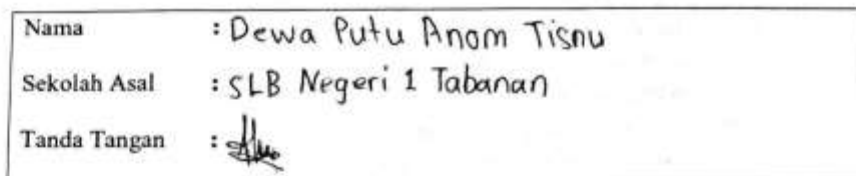 Nama : Dewa Putu Anom Tisnu
Sekolah Asal : SLB Negeri 1 Tabanan
Tanda Tangan :